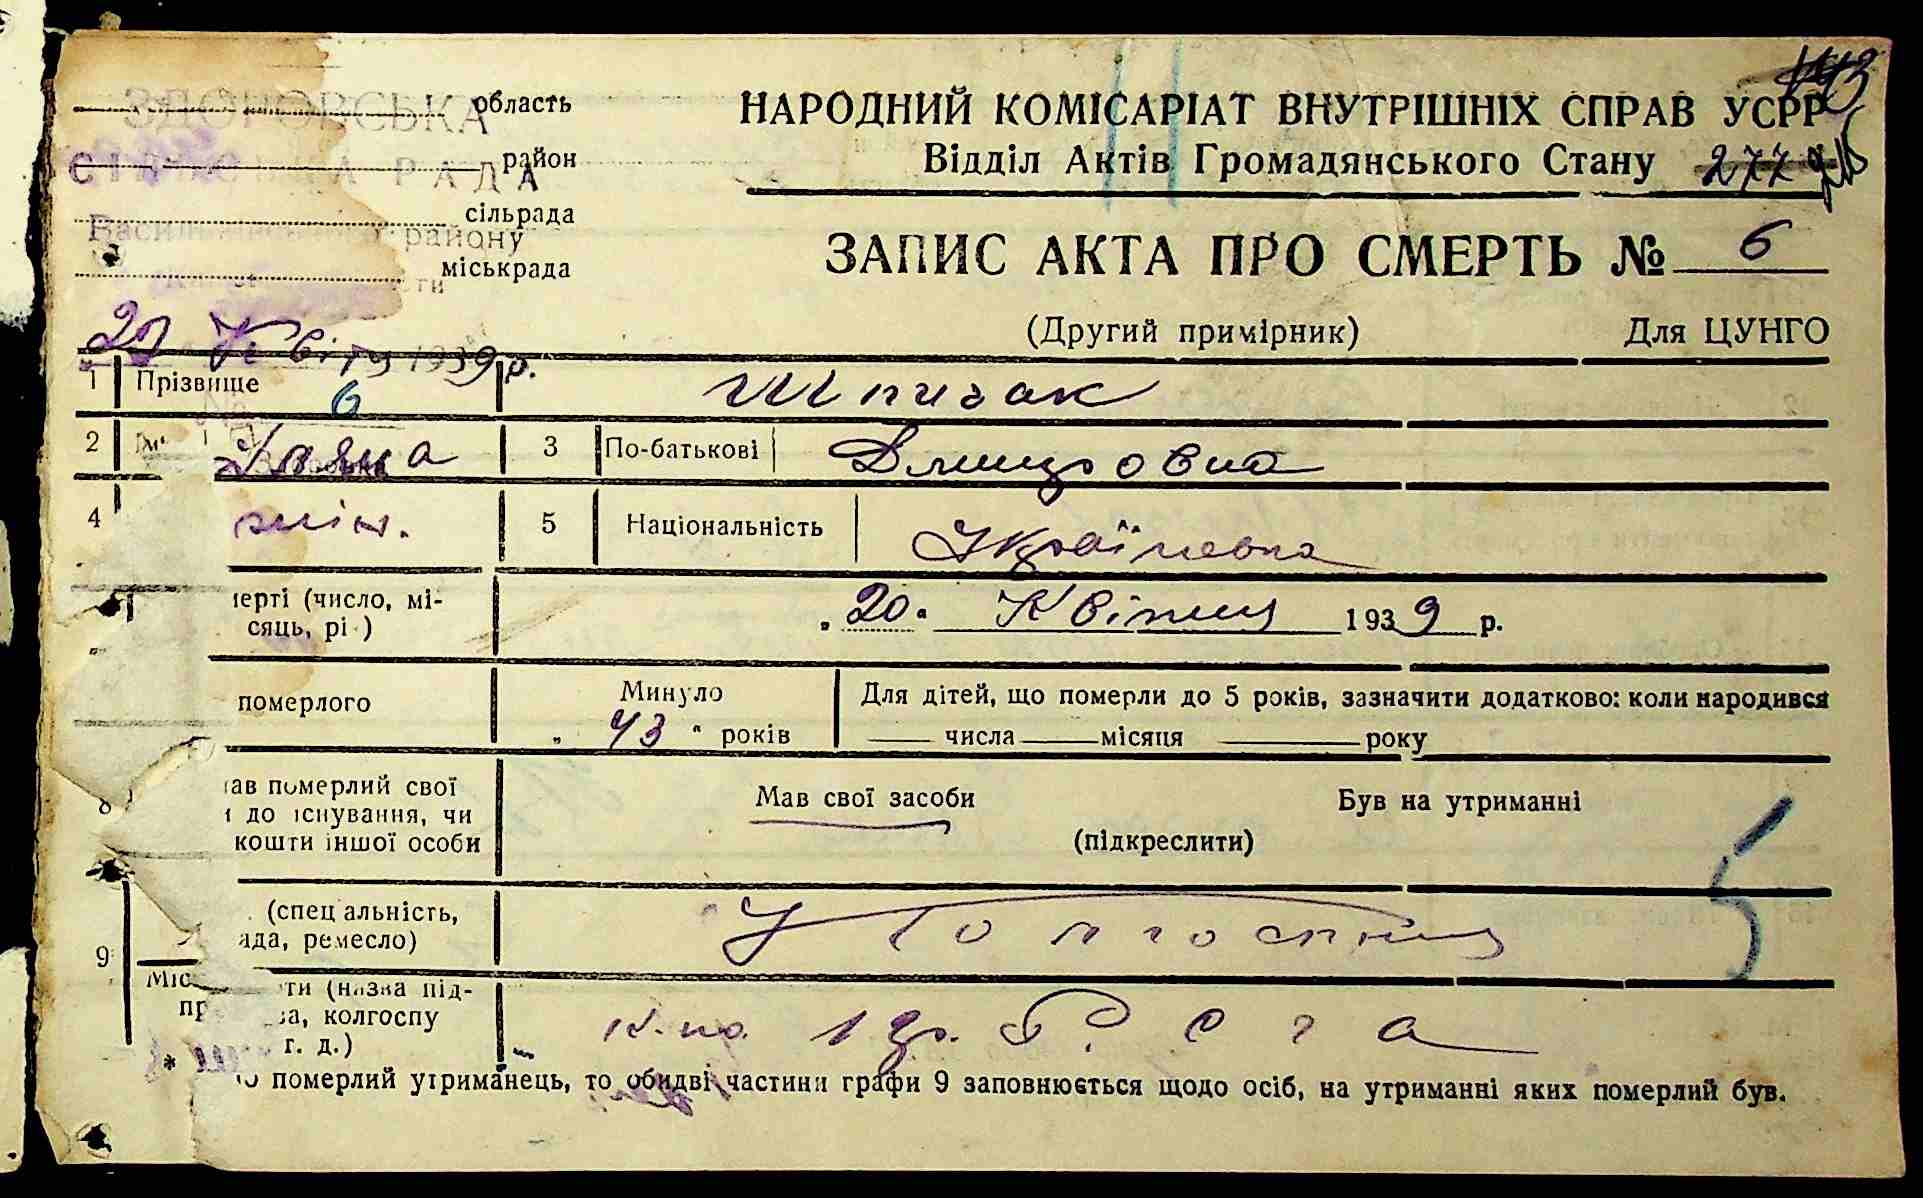 ЗДОРОВСЬКА область
СІЛЬСЬКА РАДА район
сільрада
Василівського району
міськрада
НАРОДНИЙ КОМІСАРІАТ ВНУТРІШНІХ СПРАВ УСРР
Відділ Актів Громадянського Стану 277
ЗАПИС АКТА ПРО СМЕРТЬ № 6
(Другий примірник) Для ЦУНГО
1939 р.
1 Прізвище Шпигак
6
2 Уляна 3 По-батькові Дмитровна
4 жін. 5 Національність Україновка
мерті (число, мі-
сяць, рі ) „20" Квітня 1939 р.
померлого Минуло „43" років Для дітей, що померли до 5 років, зазначити додатково: коли народився
числа місяця року
8 ав померлий свої
до існування, чи
кошти іншої особи Мав свої засоби Був на утриманні
(підкреслити)
9 (спец альність,
ада, ремесло) У Колгоспи
Міс ти (назва під-
пр ва, колгоспу
г. д.)
* о померлий утриманець, то обидві частини графи 9 заповнюється щодо осіб, на утриманні яких померлий був.